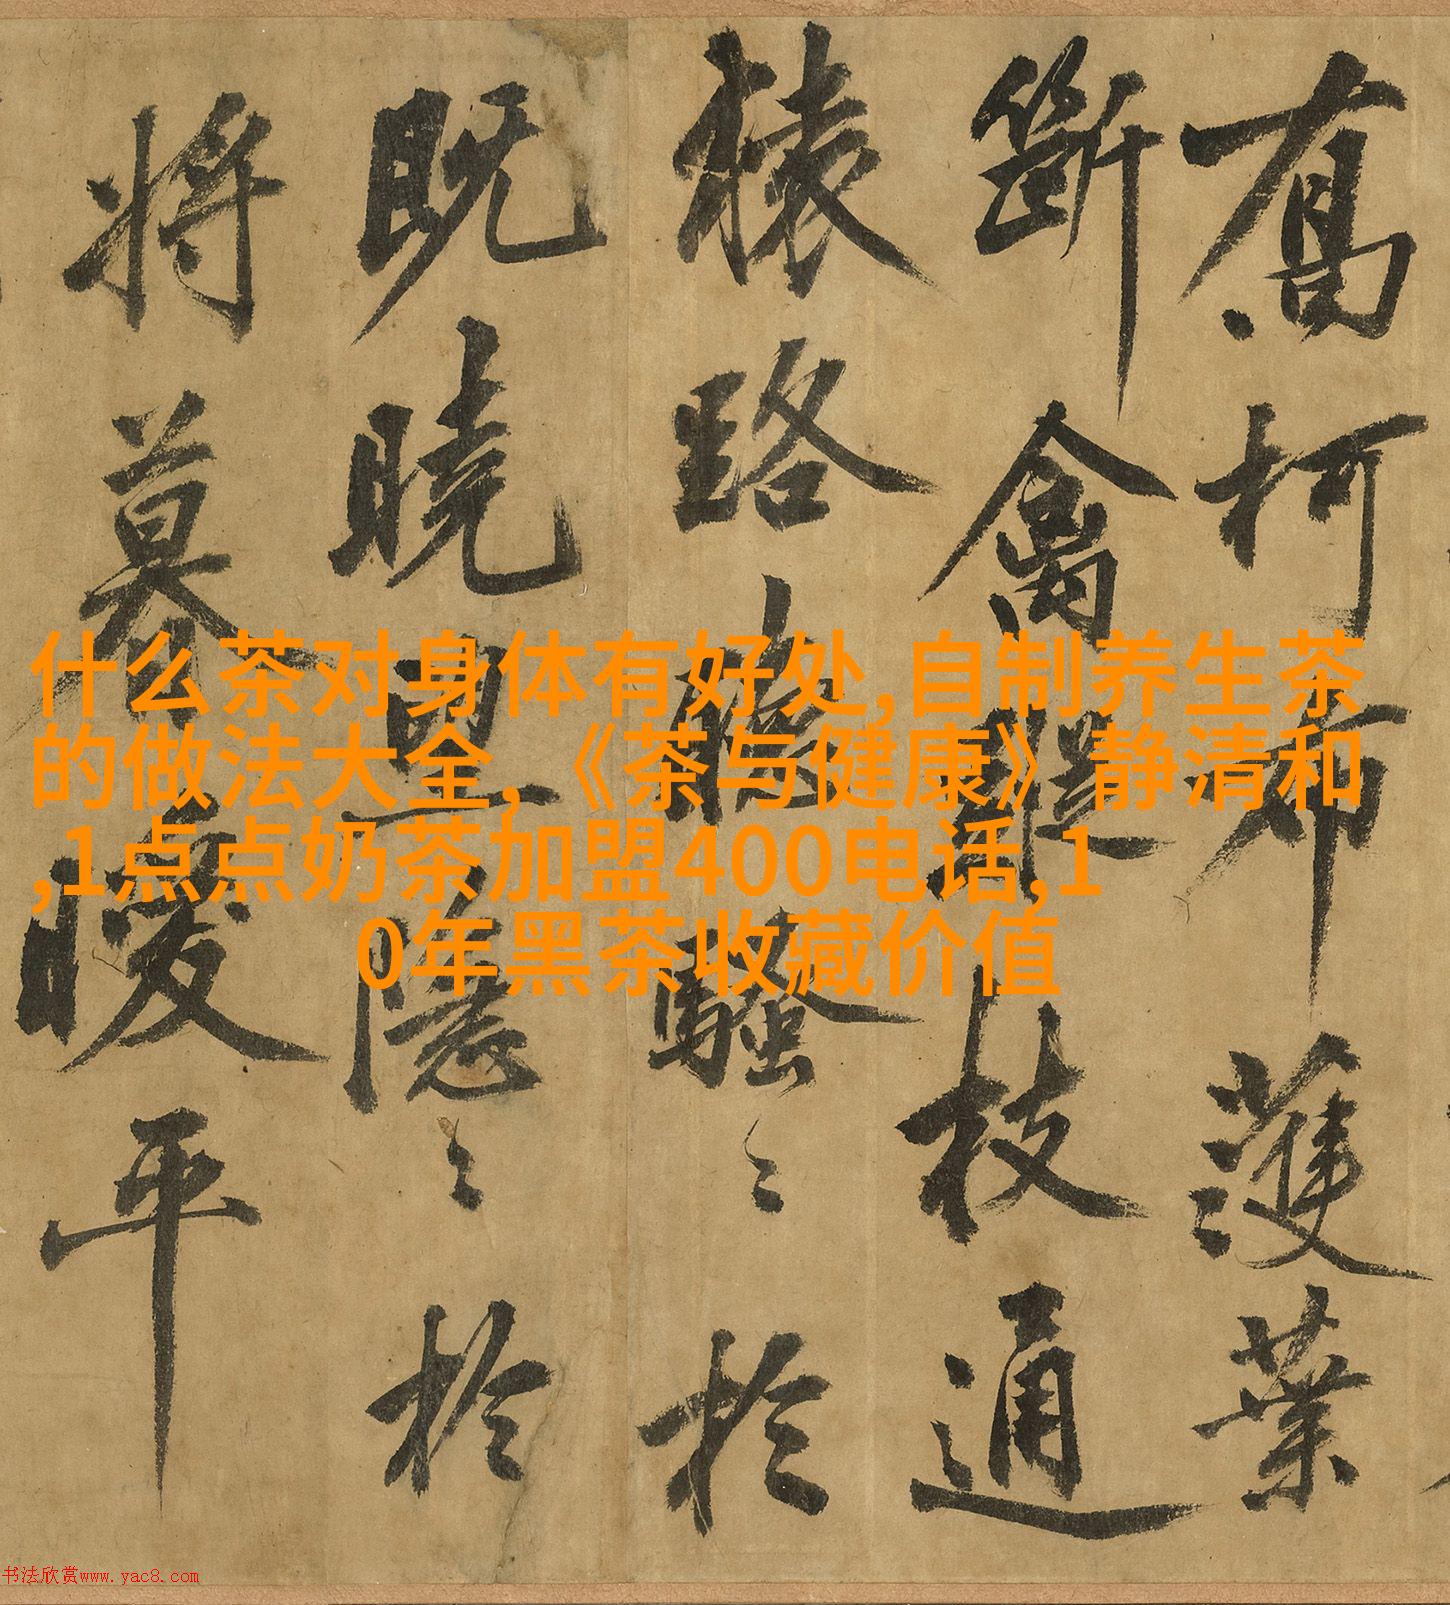 喬柯布濩葉
斷禽蹤枝通
猿路聽騷〻於
既曉隱〻於
將暮曖平
什么茶对身体有好处,自制养生茶
的做法大全,《茶与健康》静清和
,1点点奶茶加盟400电话,1
0年黑茶收藏价值
书法欣赏www.yac8.com